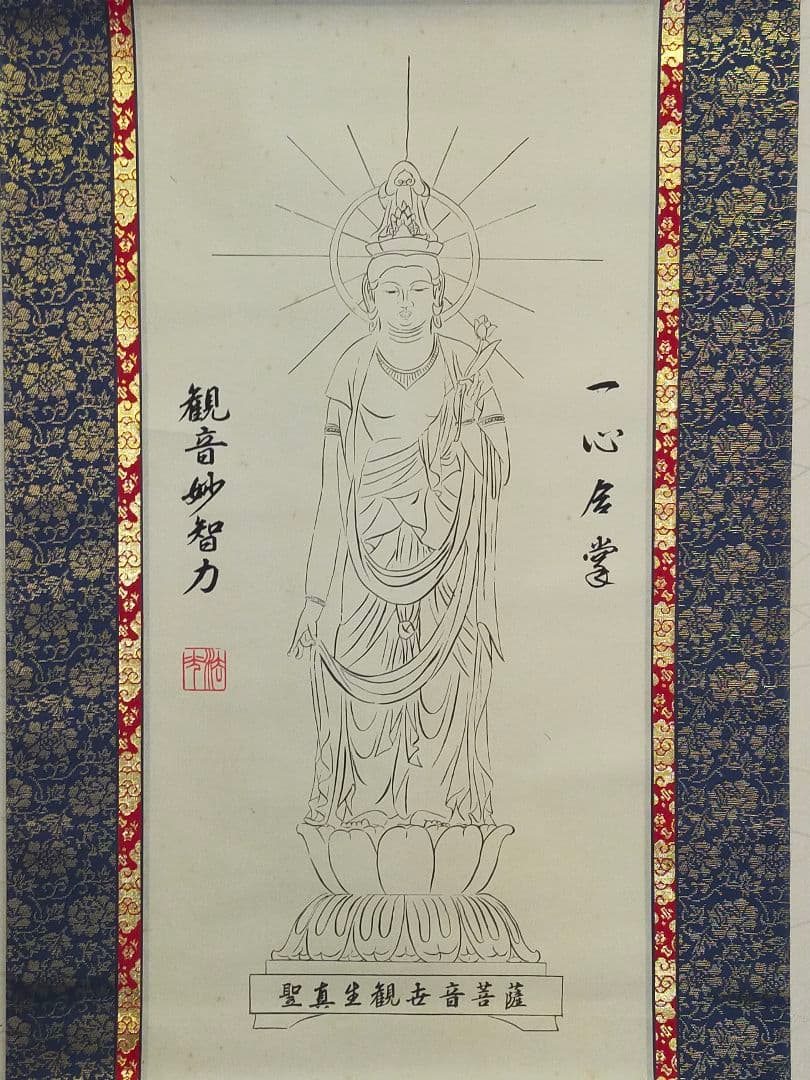 一心合掌
観音妙智力
聖真生観世音菩薩